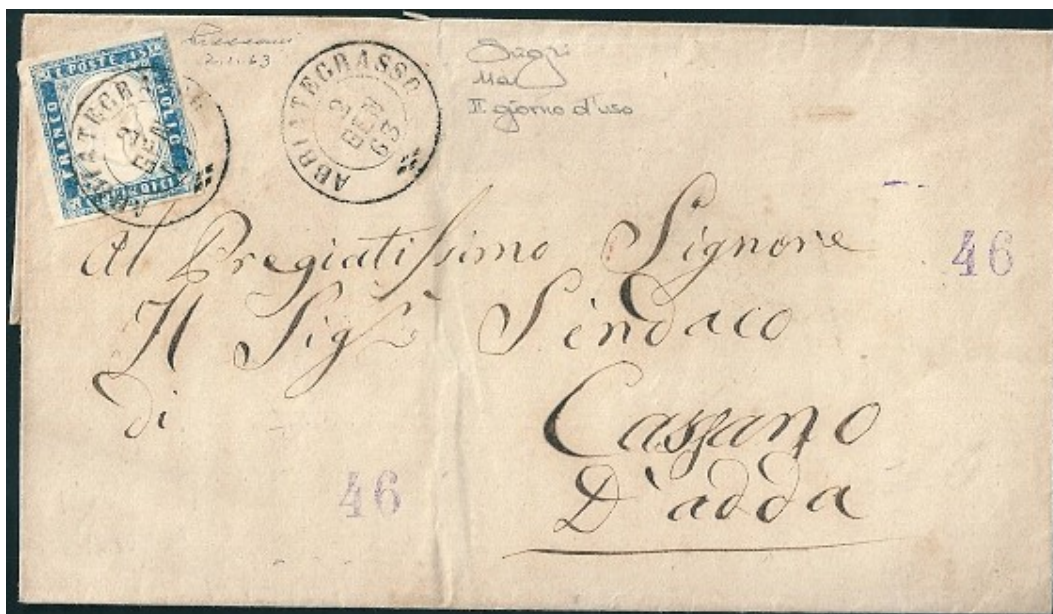 FRANCO
POSTE
2.1.63
ABBIATEGRASSO
2
GEN
63
II giorno d'uso
Al Pregiatissimo Signore
Il Sigr Sindaco
di
Cassano
D'adda
46
46